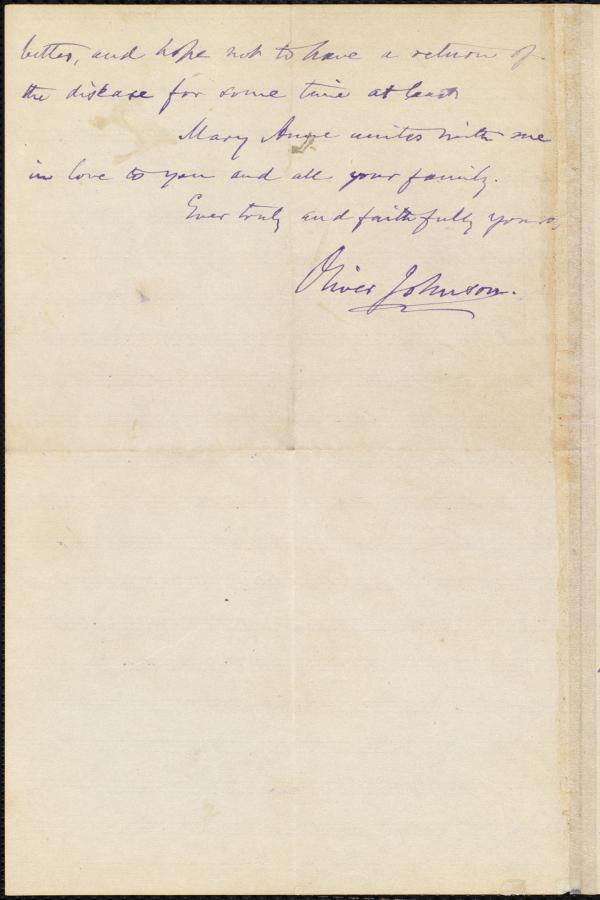 better, and hope not to have a return of
the disease for some time at least.
Mary Anne unites with me
in love to you and all your family.
Ever truly and faithfully yours,
Oliver Johnson.